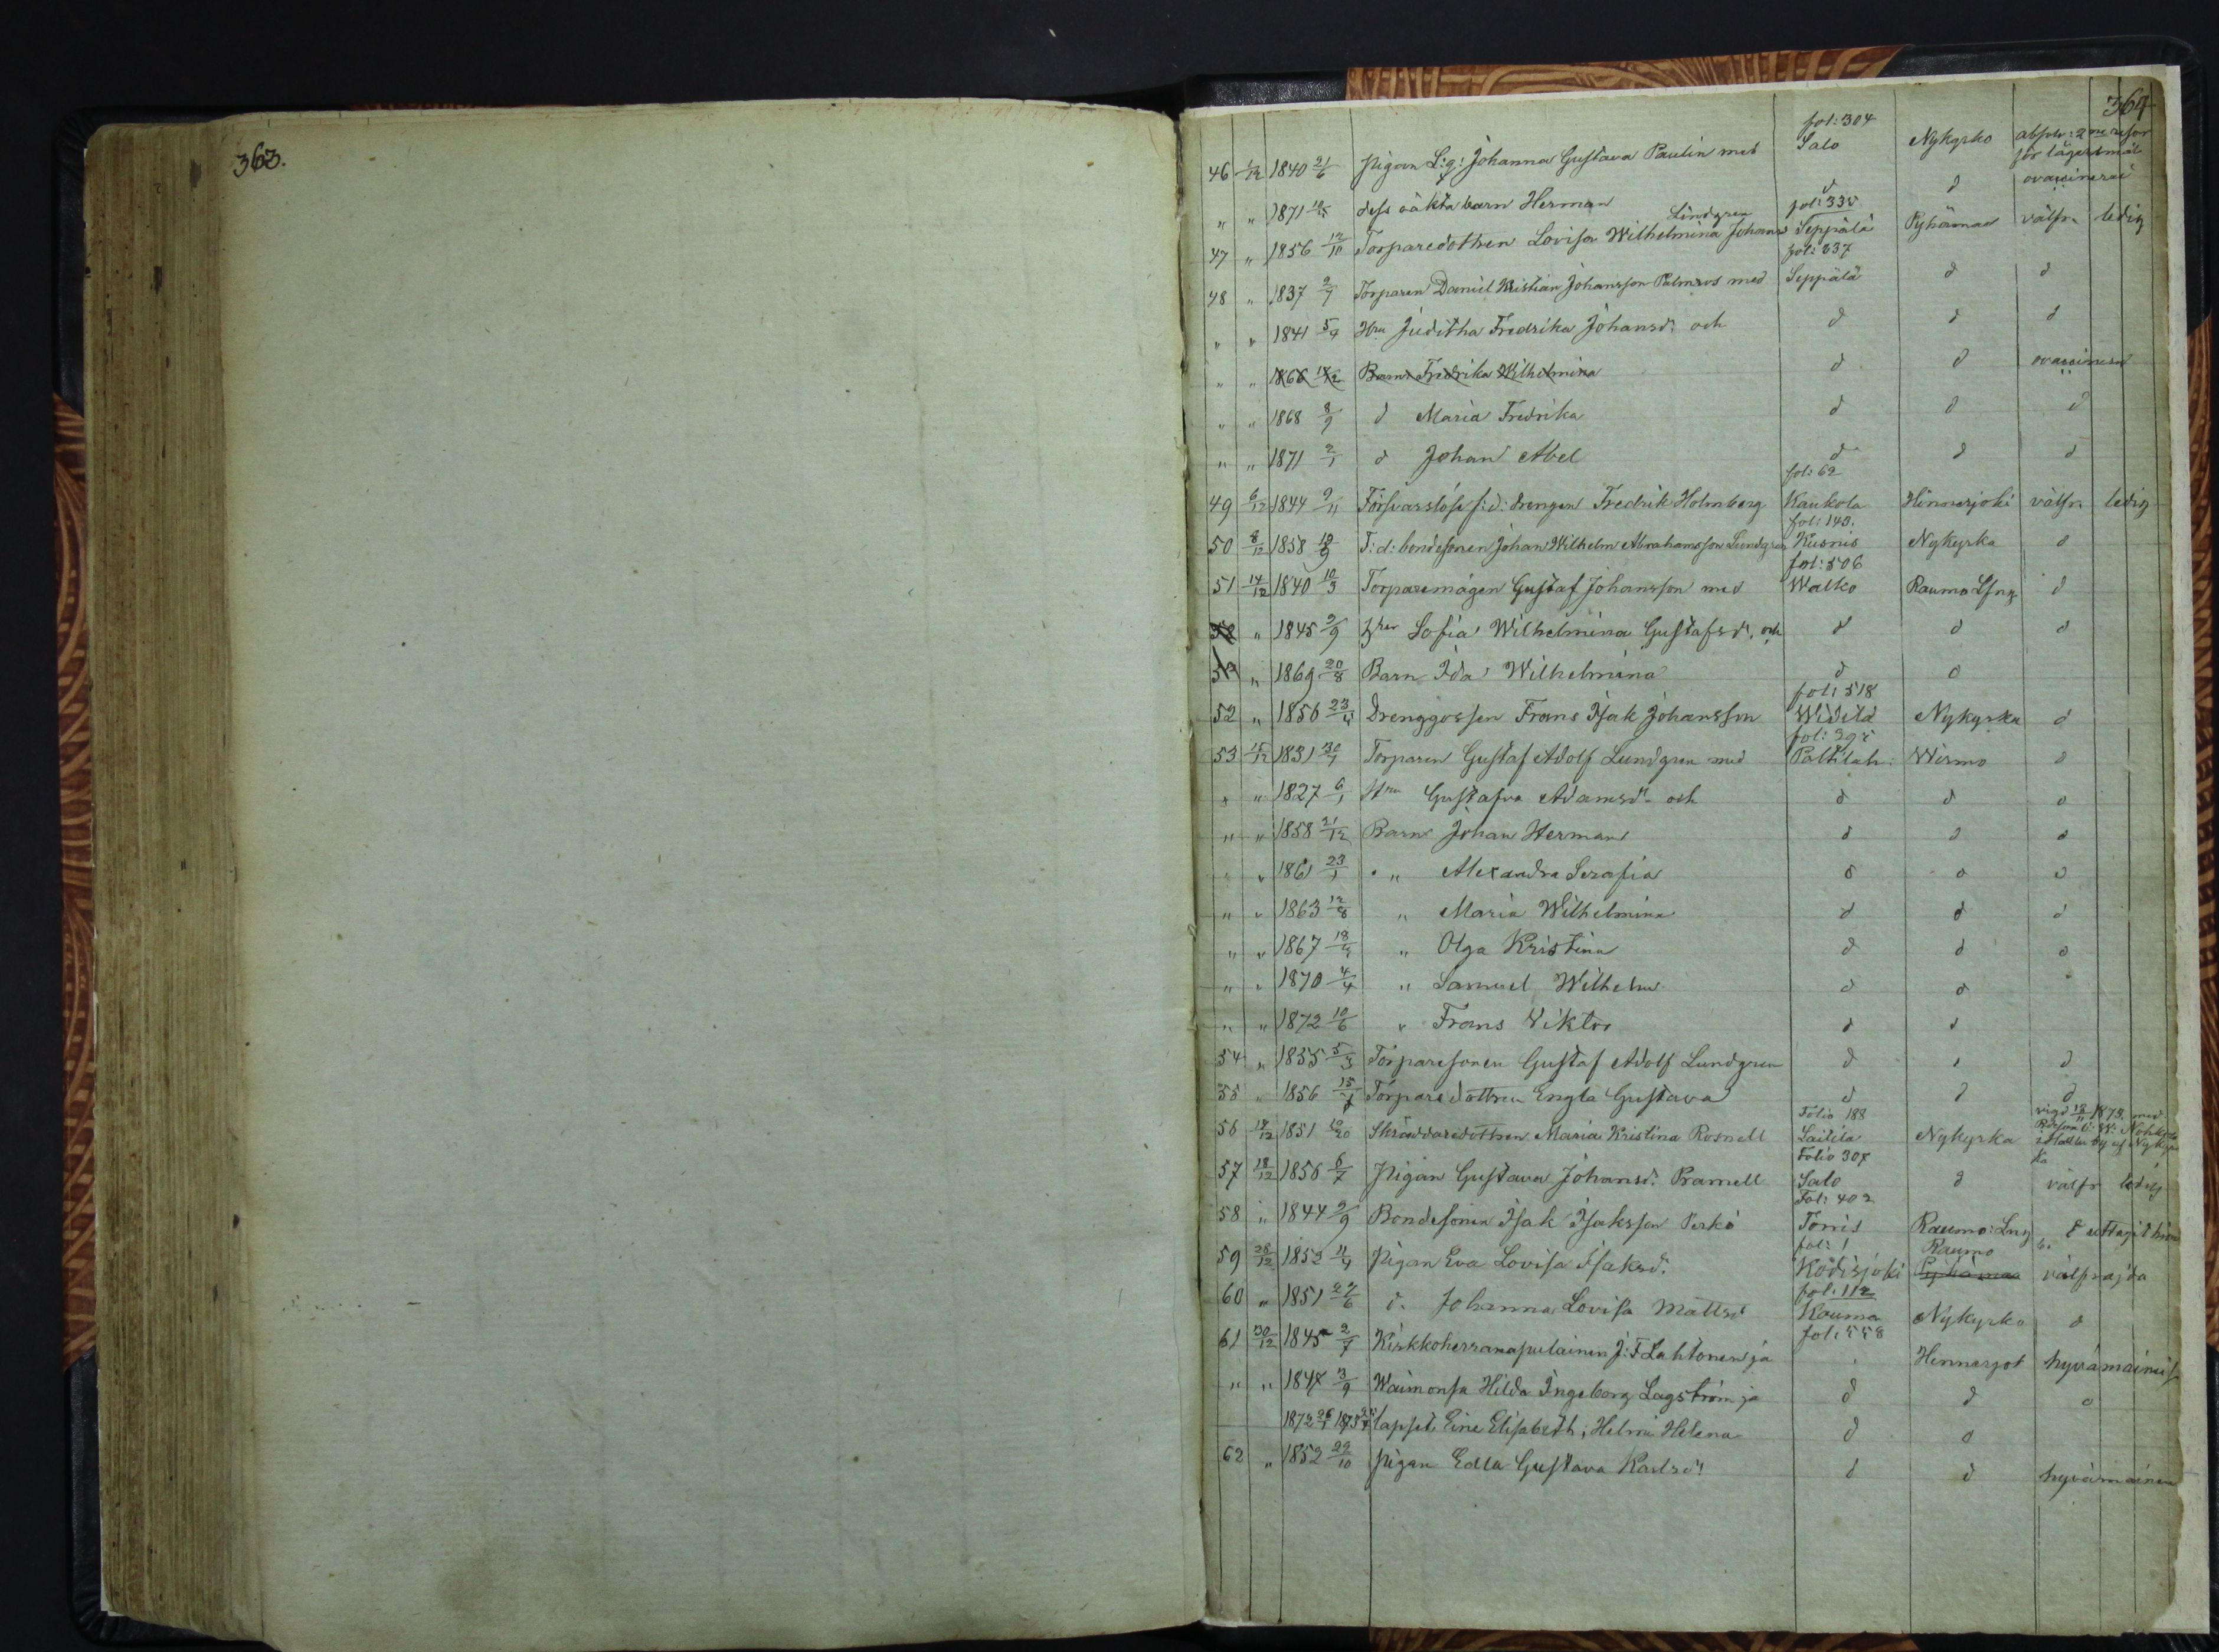 363.
364
46 1/12 1840 21/6 Pigan L:g: Johanna Gustava Paulin med fol: 304 Salo Nykyrko absolv: 2 ne resor för lägersmål
" " 1871 dess oäkta barn Herman d d ovaccinerad
47 " 1856 12/10 Torparedottren Lovisa Wilhelmina Johansd Lindgren fol: 335 Seppälä Pyhämaa välfr. ledig
48 " 1837 2/9 Torparen Daniel Kristian Johansson Palmros med fol: 337 Seppälä d d
" " 1841 5/4 Hru Juditha Fredrika Johansd: och d d d
" " 1866 Barn Fredrika Wilhelmina d d ovaccinerad
" " 1868 8/9 d Maria Fredrika d d d
" " 1871 2/1 d Johan Abel d d d
49 6/12 1844 9/11 Försvarslöse f: d: drengen Fredrik Holmberg fol: 62 Kaukola Hinnerjoki välfr. ledig
50 8/12 1858 19/9 F: d: bondesonen Johan Wilhelm Abrahamsson Lundgren fol: 143. Kusnis Nykyrka d
51 14/12 1840 10/3 Torparemågen Gustaf Johansson med fol: 506 Walko Raumo Lfng d
" 1845 9/9 Hru Sofia Wilhelmina Gustafsd. och d d d
" 1869 20/8 Barn Ida Wilhelmina d d
52 " 1856 23/4 Drenggossen Frans Isak Johansson fol: 518 Widilä Nykyrka d
53 15/12 1831 30/1 Torparen Gustaf Adolf Lundgren med fol: 395 Palttilah: Wirmo d
" " 1827 6/1 Hru Gustafva Adamsd. och d d d
" " 1858 21/12 Barn Johan Herman d d d
" " 1861 23/1 " Alexandra Serafia d d d
" " 1863 12/8 " Maria Wilhelmina d d d
" " 1867 18/4 " Olga Kristina d d d
" " 1870 4/4 " Samuel Wilhelm d d
" " 1872 10/6 " Frans Viktor d d
54 " 1855 5/3 Torparesonen Gustaf Adolf Lundgren d d d
55 " 1856 15/1 Torparedottren Engla Gustava d d d
56 18/12 1851 Skräddaredottren Maria Kristina Rosnell Folio 188 Laitila Nykyrka vigd 18/11 1873. med
57 18/12 1856 6/7 Pigan Gustava Johansd. Pramell Folio 307 Salo d välfr ledig
58 " 1844 9/9 Bondesonen Isak Isaksson Perkö Fol: 402 Torris Raumo: Lng d uttagit hin
59 28/12 1853 4/4 Pigan Eva Lovisa Isaksd. fol: 1 Kodisjoki Raumo Pyhämaa välfrajda
60 " 1851 27/6 d. Johanna Lovisa Mattsd fol: 112 Kauma Nykyrka d
61 30/12 1845 2/7 Kirkkoherranapulainen J: F Lahtonen ja fol: 558 Hinnerjok hyvämainei
" " 1847 3/9 Waimonsa Hilda Ingeborg Lagström ja d d d
1872 26/1 1873 lapset, Eine Elisabeth, Helmi Helena d d
62 " 1852 29/10 Pigan Edla Gustava Karlsd: d d hyvämainen